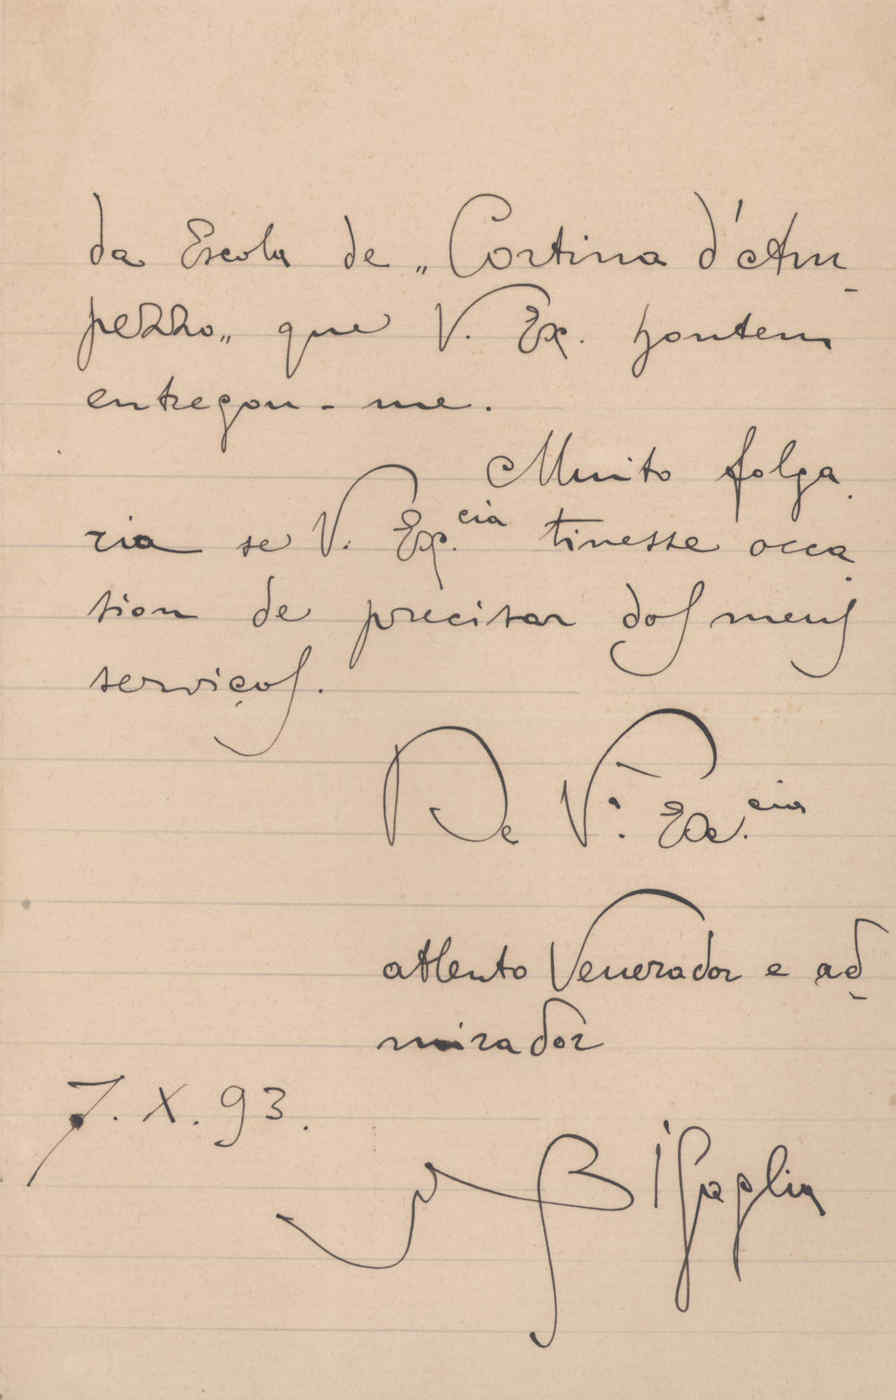 da Escola de „Cortina d'Am-
pezzo„ que V. Ex. hontem
entregou-me.
Muito folga-
ria se V. Ex.cia tivesse occa-
sion de precisar dos meus
serviços.
De V.a Ex.cia
attento Venerador e ad-
mirador
7. X. 93.